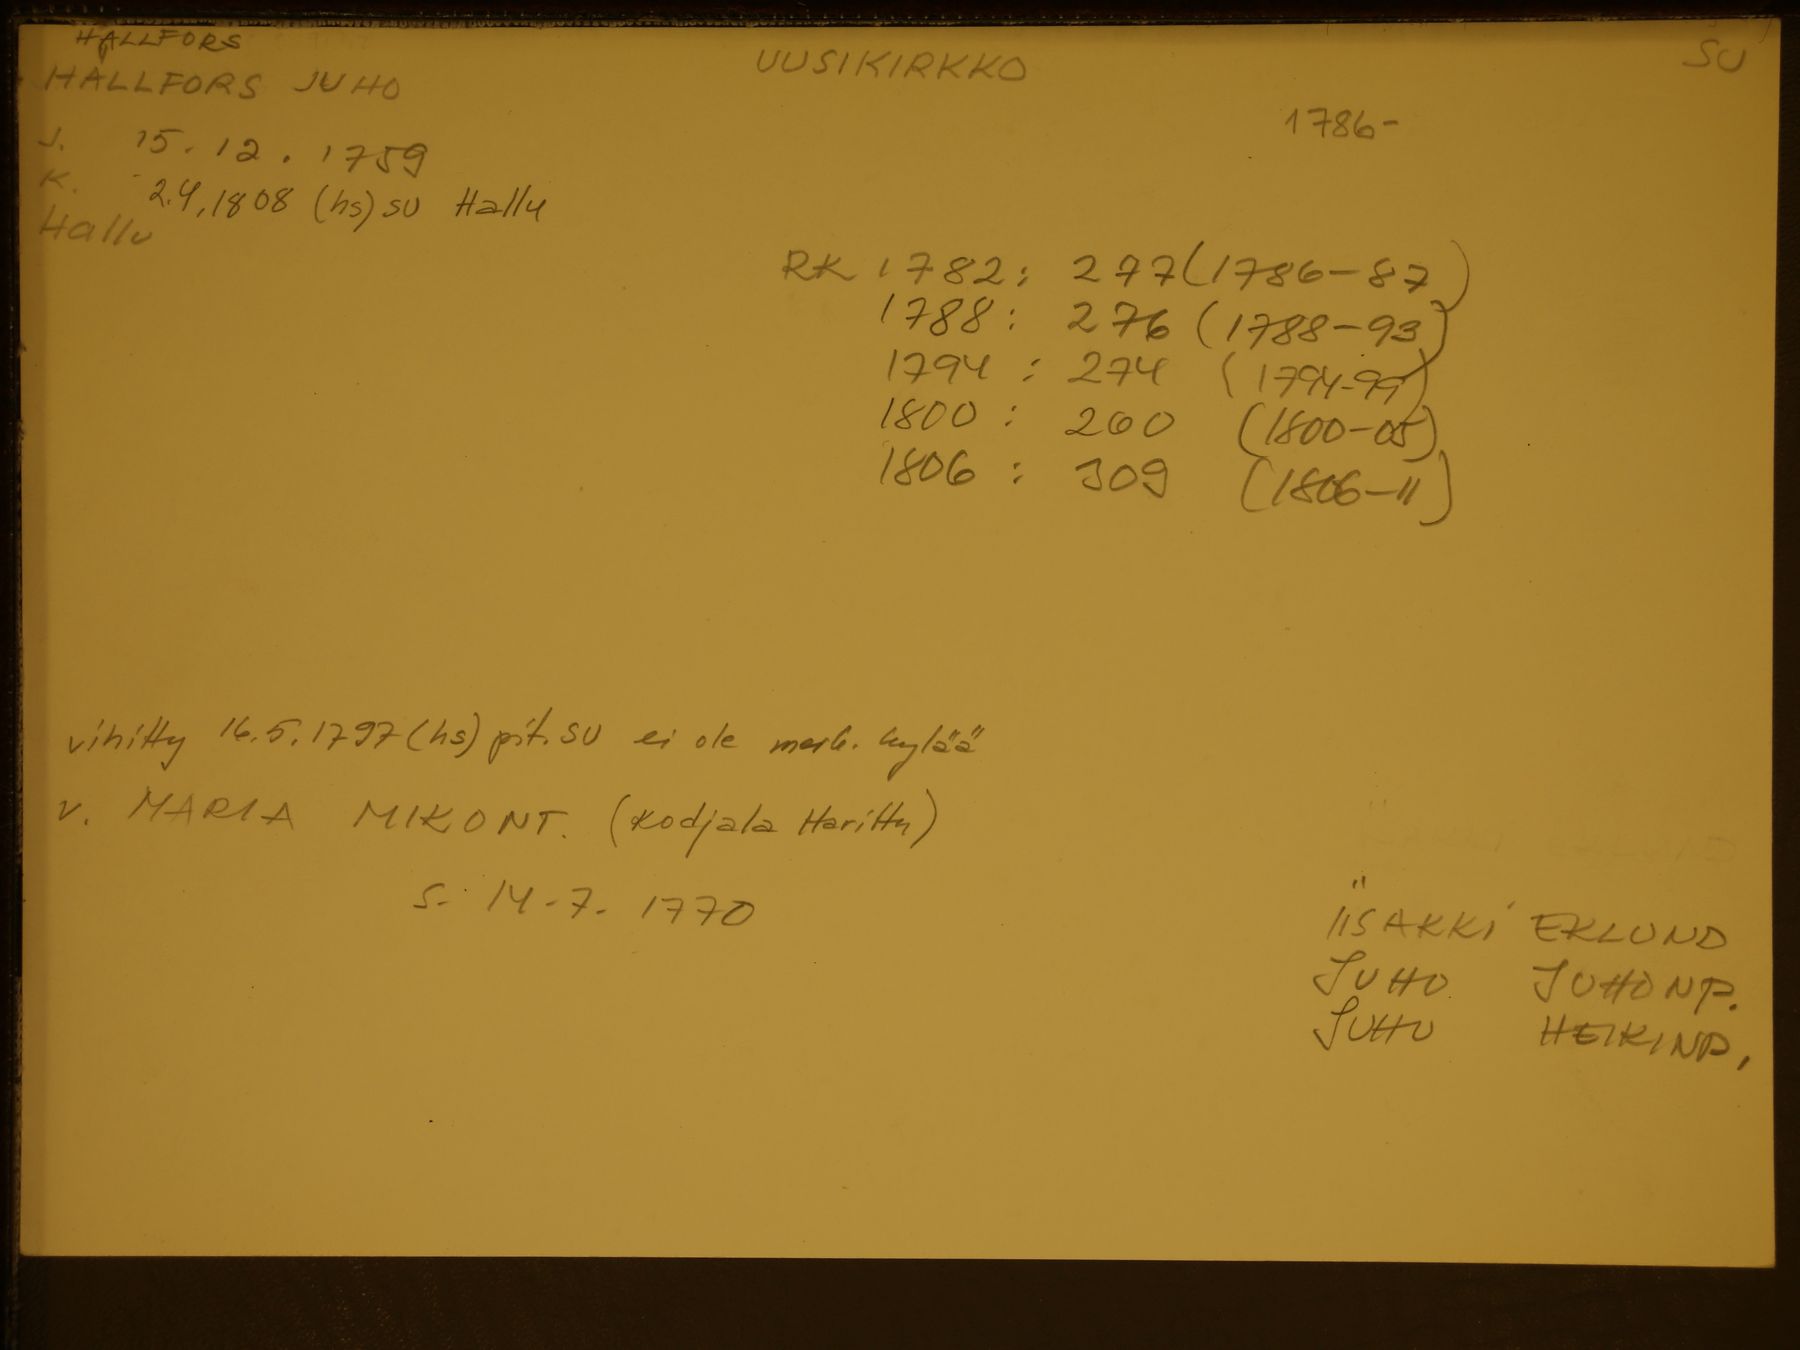 HALLFORS
HALLFORS JUHO
UUSIKIRKKO
SU
1786-
S. 15.12.1759
K. 2.4.1808 (hs) SU Hallu
Hallu
RK 1782: 277 (1786-87)
1788: 276 (1788-93)
1794: 274 (1794-99)
1800: 260 (1800-05)
1806: 309 (1806-11)
vihitty 16.5.1797 (hs) pit. SU ei ole merk. kylää
v. MARIA MIKONT. (Kodjala Harittu)
S. 14.7.1770
IISAKKI EKLUND
JUHO JUHONP.
JUHO HEIKINP.